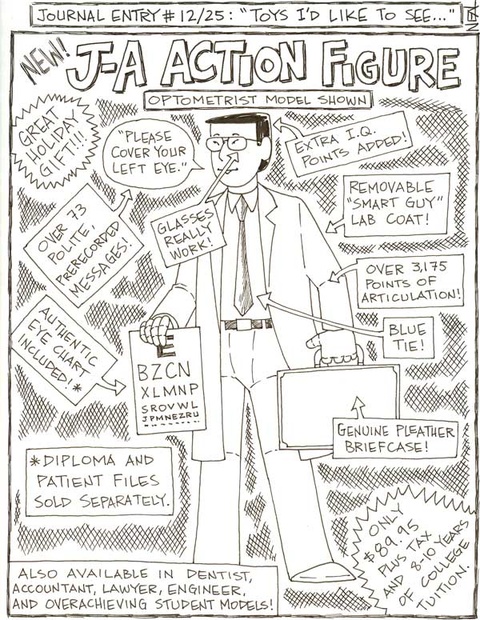 JOURNAL ENTRY # 12/25: "TOYS I'D LIKE TO SEE..."
NEW! J-A ACTION FIGURE
OPTOMETRIST MODEL SHOWN
GREAT
HOLIDAY
GIFT!!!
"PLEASE
COVER YOUR
LEFT EYE."
EXTRA I.Q.
POINTS ADDED!
OVER 73
POLITE,
PRERECORDED
MESSAGES!
GLASSES
REALLY
WORK!
REMOVABLE
"SMART GUY"
LAB COAT!
OVER 3,175
POINTS OF
ARTICULATION!
AUTHENTIC
EYE CHART
INCLUDED!*
BLUE
TIE!
E
BZCN
XLMNP
SROVWL
JPMNEZRU
GENUINE PLEATHER
BRIEFCASE!
*DIPLOMA AND
PATIENT FILES
SOLD SEPARATELY.
ONLY
$89.95
PLUS TAX...
AND 8-10 YEARS
OF COLLEGE
TUITION.
ALSO AVAILABLE IN DENTIST,
ACCOUNTANT, LAWYER, ENGINEER,
AND OVERACHIEVING STUDENT MODELS!